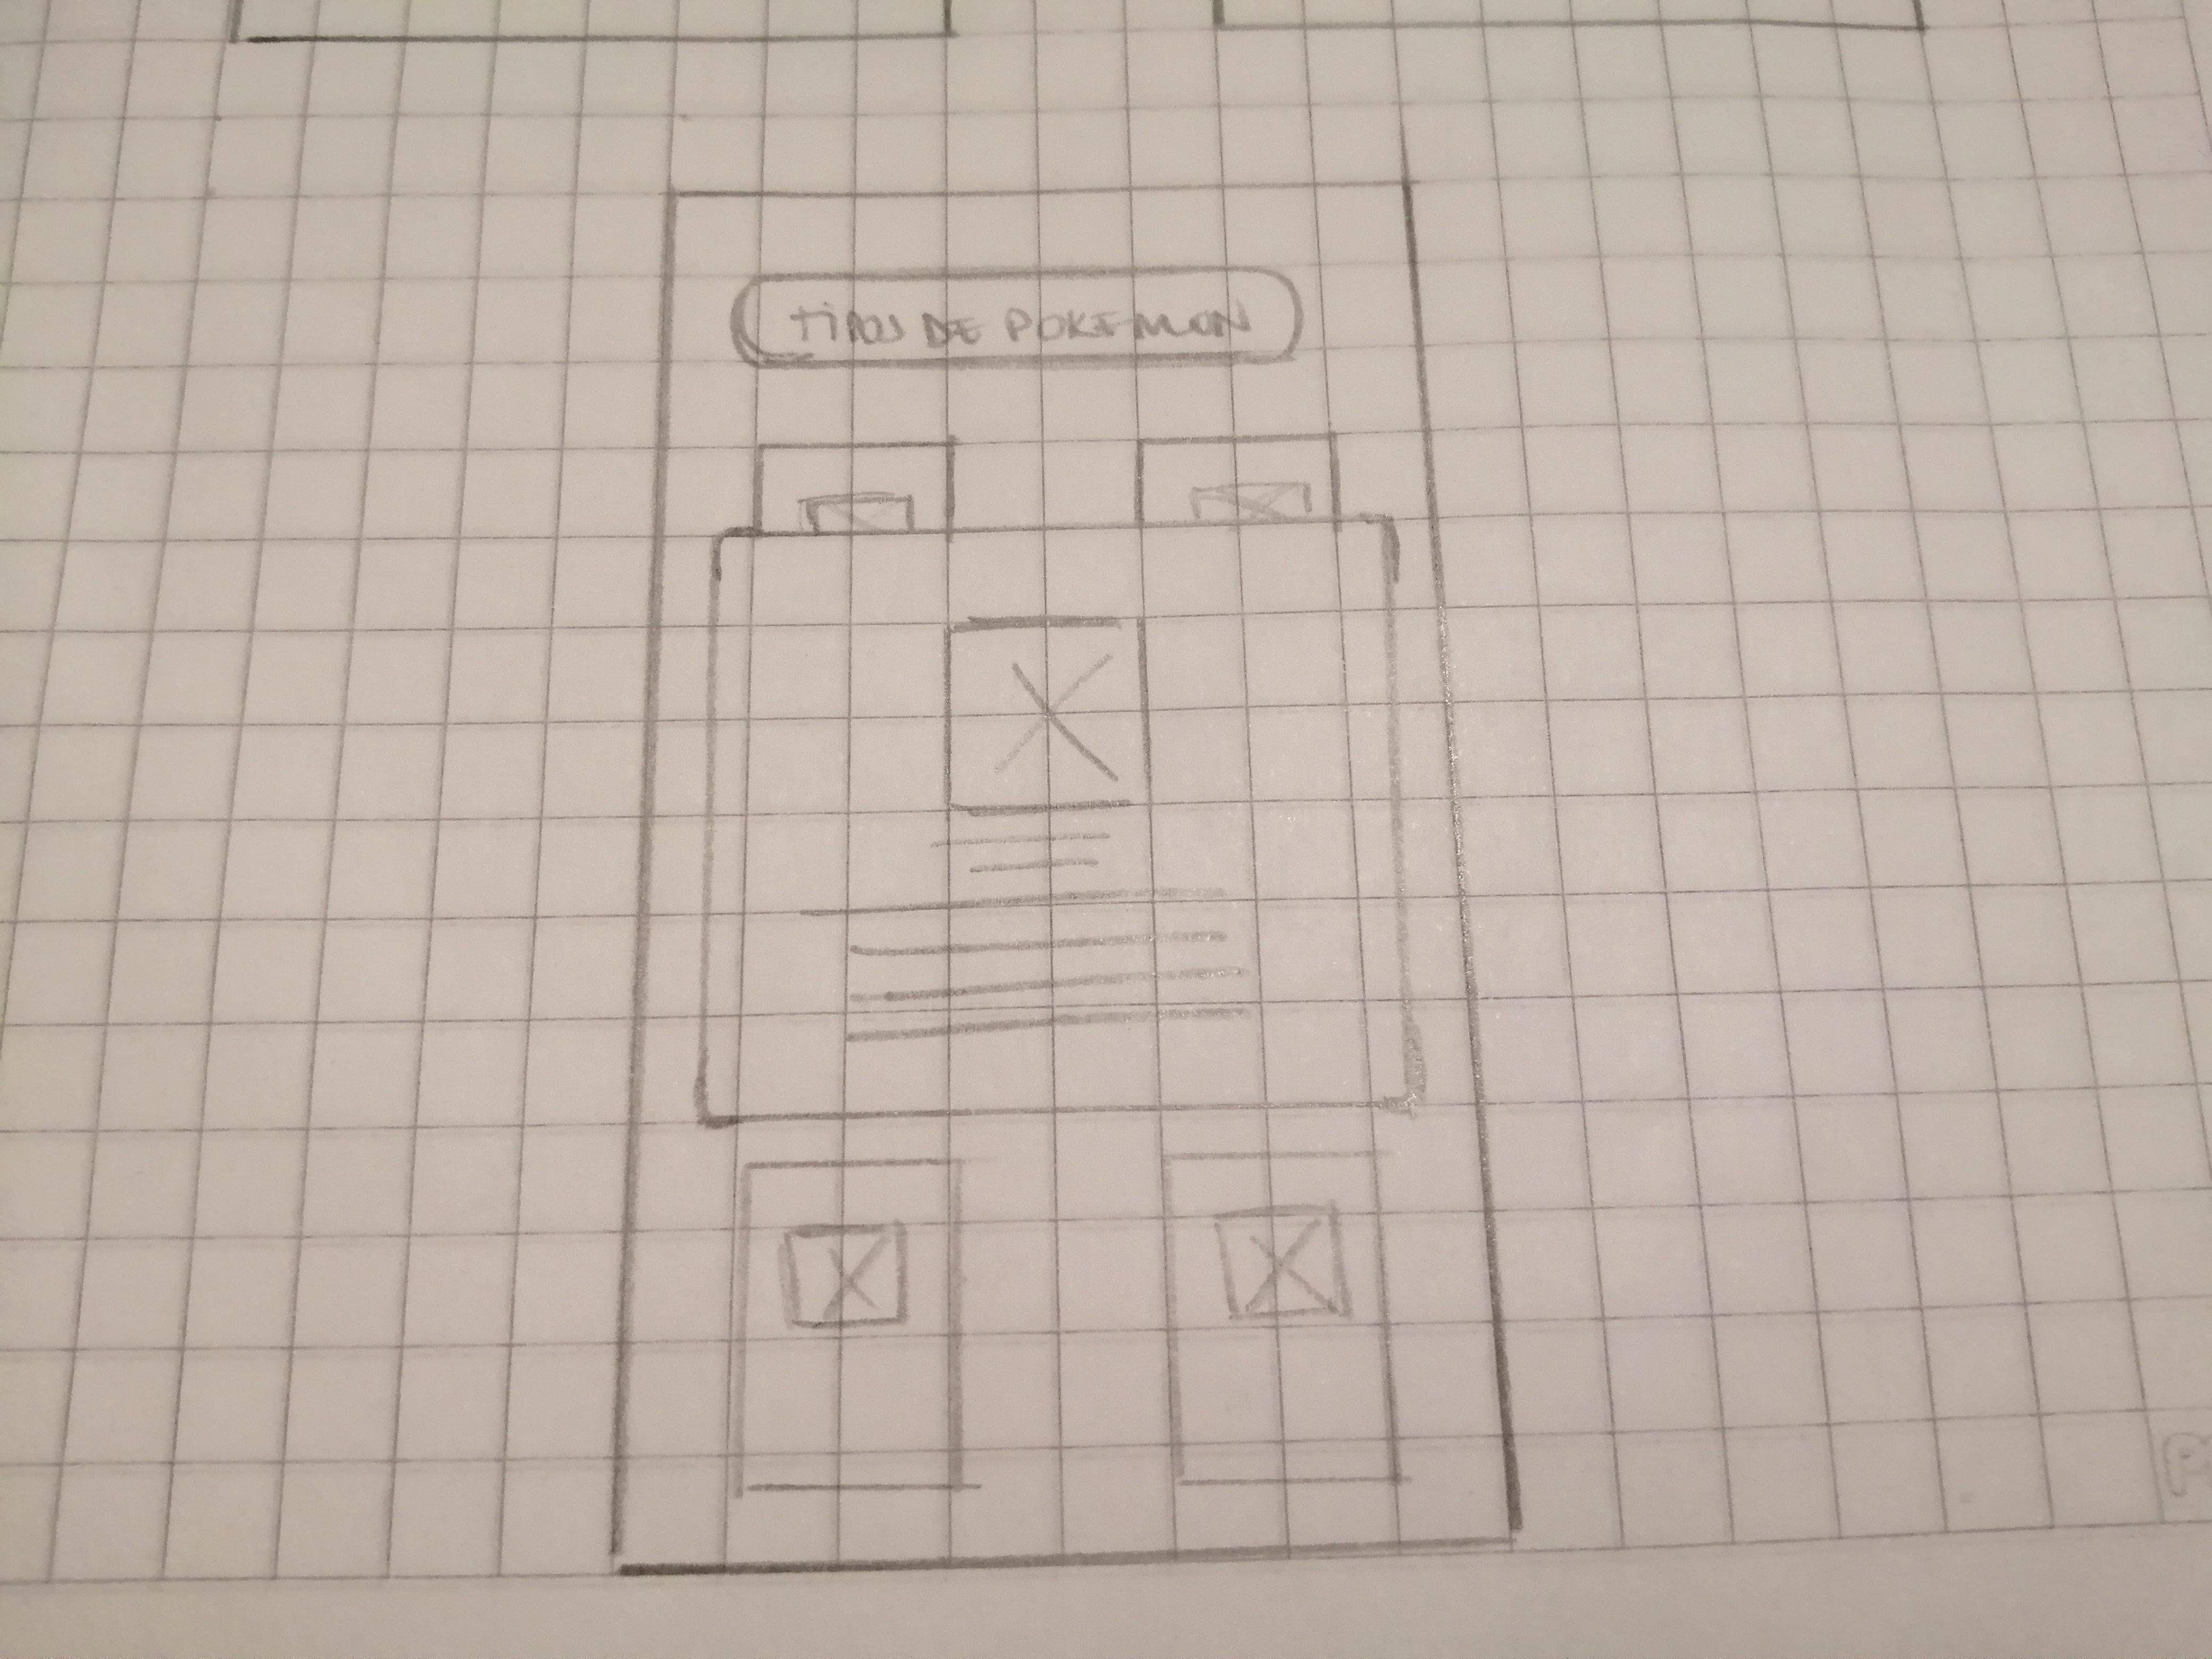 TIPOS DE POKEMON